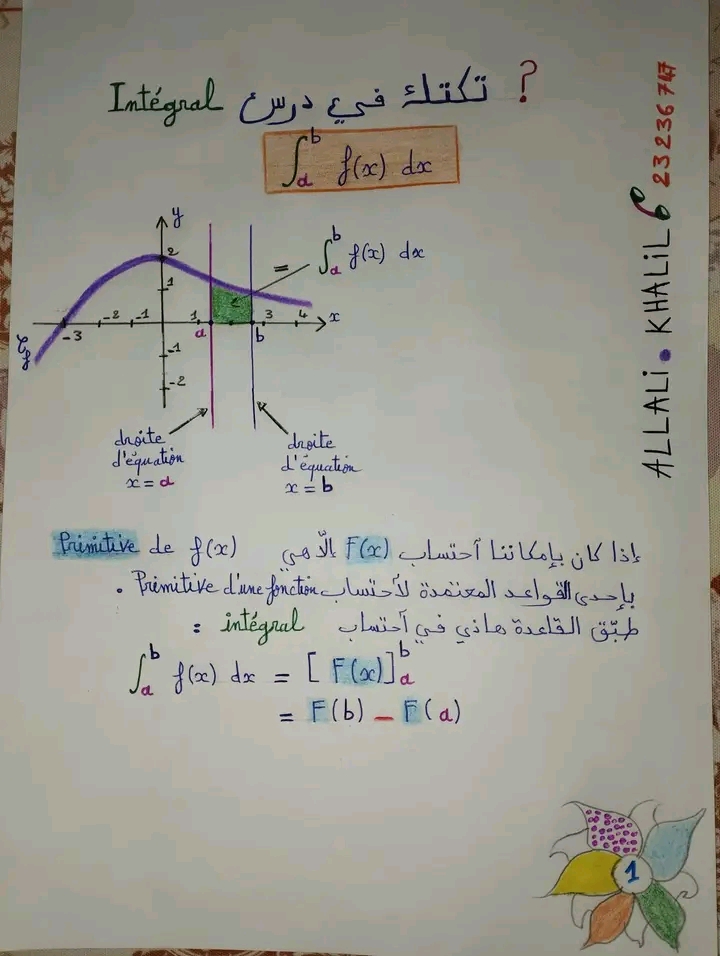 ؟ تكتك في درس Intégral
∫_a^b f(x) dx
ALLALI . KHALIL 23236747
y
2
= ∫_a^b f(x) dx
1
-3 -2 -1 1 3 4 x
a b
-1
-2
droite d'équation x = a
droite d'équation x = b
إذا كان بإمكاننا آحتساب F(x) الّا هي Primitive de f(x)
بإحدى القواعد المعتمدة لآحتساب Primitive d'une fonction .
طبّق القاعدة هاذي في آحتساب intégral :
∫_a^b f(x) dx = [F(x)]_a^b
= F(b) - F(a)
1